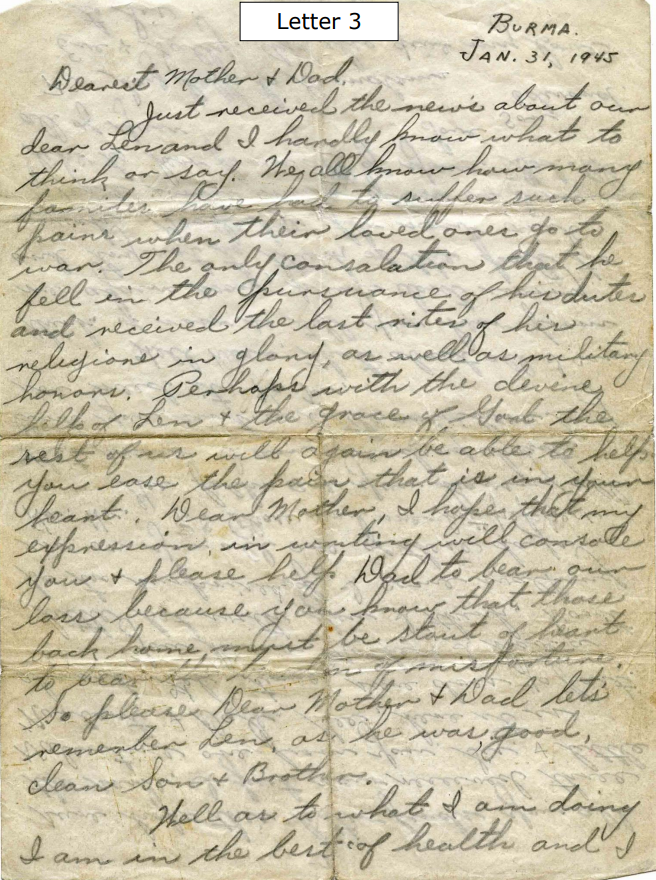 Letter 3
BURMA.
JAN. 31, 1945
Dearest Mother & Dad,
Just received the news about our
dear Len and I hardly know what to
think or say. We all know how many
familes have had to suffer such
pains when their loved ones go to
war. The only consalation that he
fell in the pursuance of his dutes
and received the last rites of his
religione in glory, as well as military
honors. Perhaps with the devine
help of Len & the grace of God the
rest of us will again be able to help
you ease the pain that is in your
heart. Dear Mother, I hope that my
expression in writing will console
you & please help Dad to bear our
loss because you know that those
back home must be stout of heart
to bear the of misfortune.
So please Dear Mother & Dad let's
remember Len, as he was, good,
clean Son & Brother.
Well as to what I am doing
I am in the best of health and I